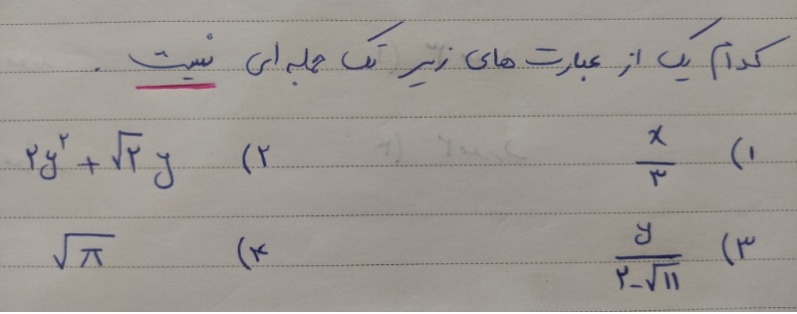 کدام یک از عبارت های زیر تک جمله ای نیست .
۱) x/۳ ۲) ۲y^۲ + √۲ y
۳) y/(۲-√۱۱) ۴) √π